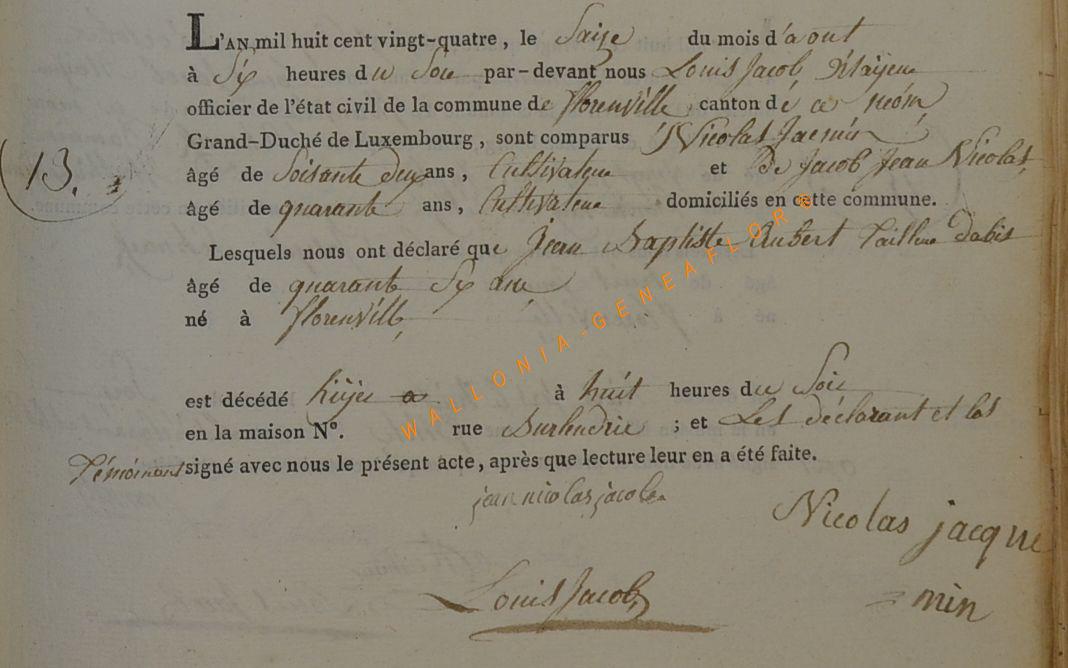 L'AN mil huit cent vingt-quatre, le Saize du mois d'aout
à Six heures du Soir par-devant nous Louis Jacob
officier de l'état civil de la commune de florenville canton dé ce nom
Grand-Duché de Luxembourg, sont comparus Nicolas Jacmin
13.
âgé de Soisante deux ans, Cultivateur et De Jacob Jean Nicolas
âgé de quarante ans, Cultivateur domiciliés en cette commune.
Lesquels nous ont déclaré que Jean Baptiste Aubert Tailleur Dabis
âgé de quarante Six ans
né à florenville
est décédé hiyer a à huit heures du Soir
en la maison N°. rue ; et Les déclarant et les
Témoins ont signé avec nous le présent acte, après que lecture leur en a été faite.
jean nicolas jacob
Nicolas jacque
min
Louis Jacob
WALLONIA-GENEAFLOR©